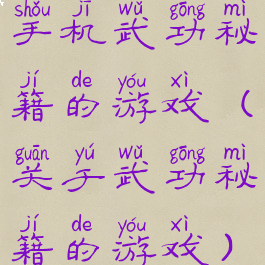 shǒu jī wǔ gōng mì
手机武功秘
jí de yóu xì
籍的游戏（
guān yú wǔ gōng mì
关于武功秘
jí de yóu xì
籍的游戏）